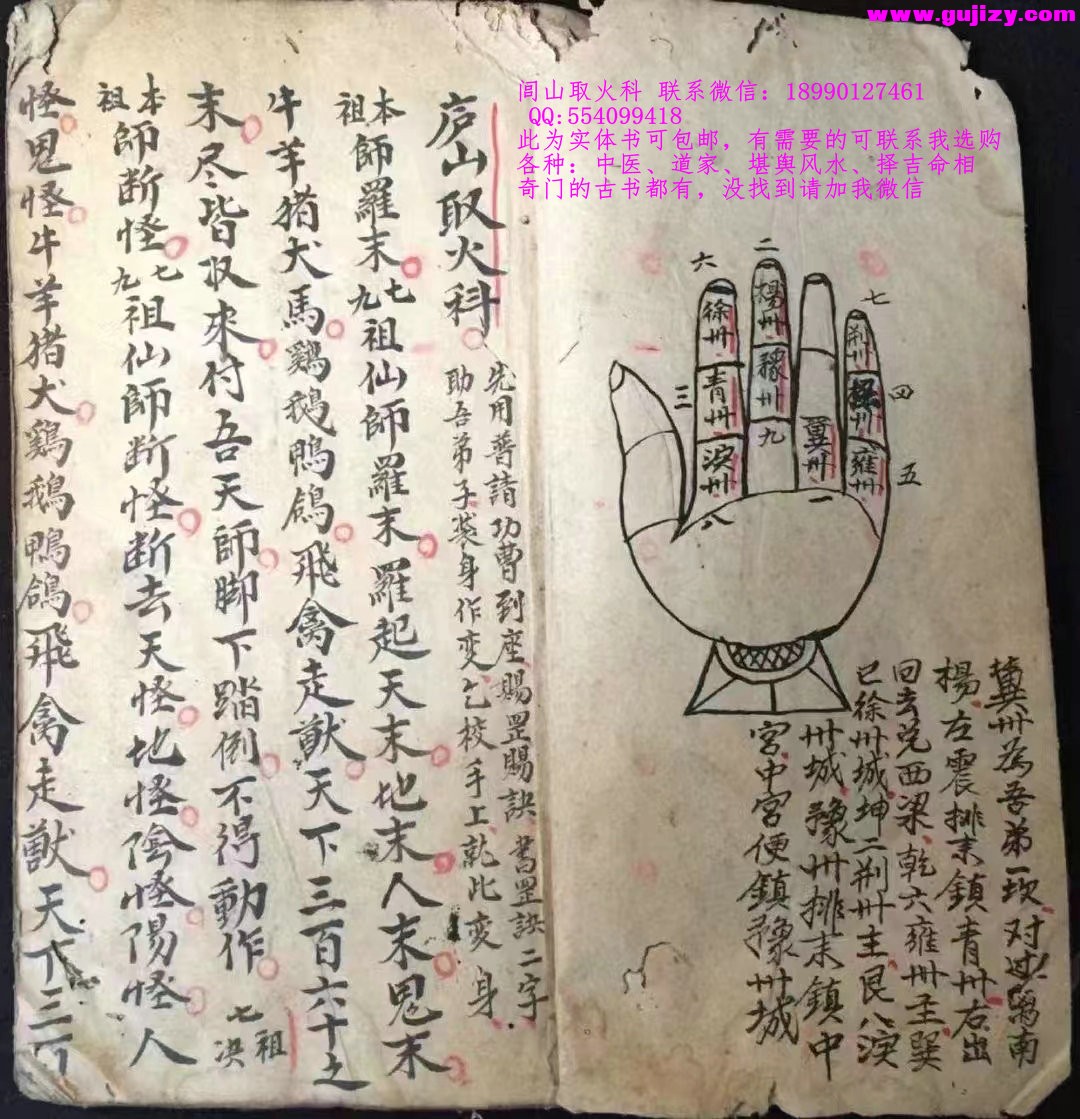 www.gujizy.com
闾山取火科 联系微信：18990127461
QQ:554099418
此为实体书可包邮，有需要的可联系我选购
各种：中医、道家、堪舆风水、择吉命相
奇门的古书都有，没找到请加我微信
二
六
七
三
四
五
九
一
八
徐卅
青卅
楊卅
豫卅
冀卅
荆卅
雍卅
冀卅為吾弟一坎对过离南
楊左震排末鎮青卅右出
回去兑西梁乾六雍卅主巽
已徐卅城坤二荆卅主艮八
卅城豫卅排末鎮中
宮中宮便鎮豫卅城
庐山取火科
先用普請功曹到座賜罡賜訣書罡訣二字
助吾弟子裝身作変乞校手工乾此変身
本祖師羅末七九祖仙師羅末羅起天末地末人末鬼末
牛羊猪犬馬鷄鵝鴨鴿飛禽走獸天下三百六十之
末尽皆収來付吾天師脚下踏倒不得動作七祖决
本祖師断怪七九祖仙師断怪断去天怪地怪陰怪陽怪人
怪鬼怪牛羊猪犬鷄鵝鴨鴿飛禽走獸天下三百